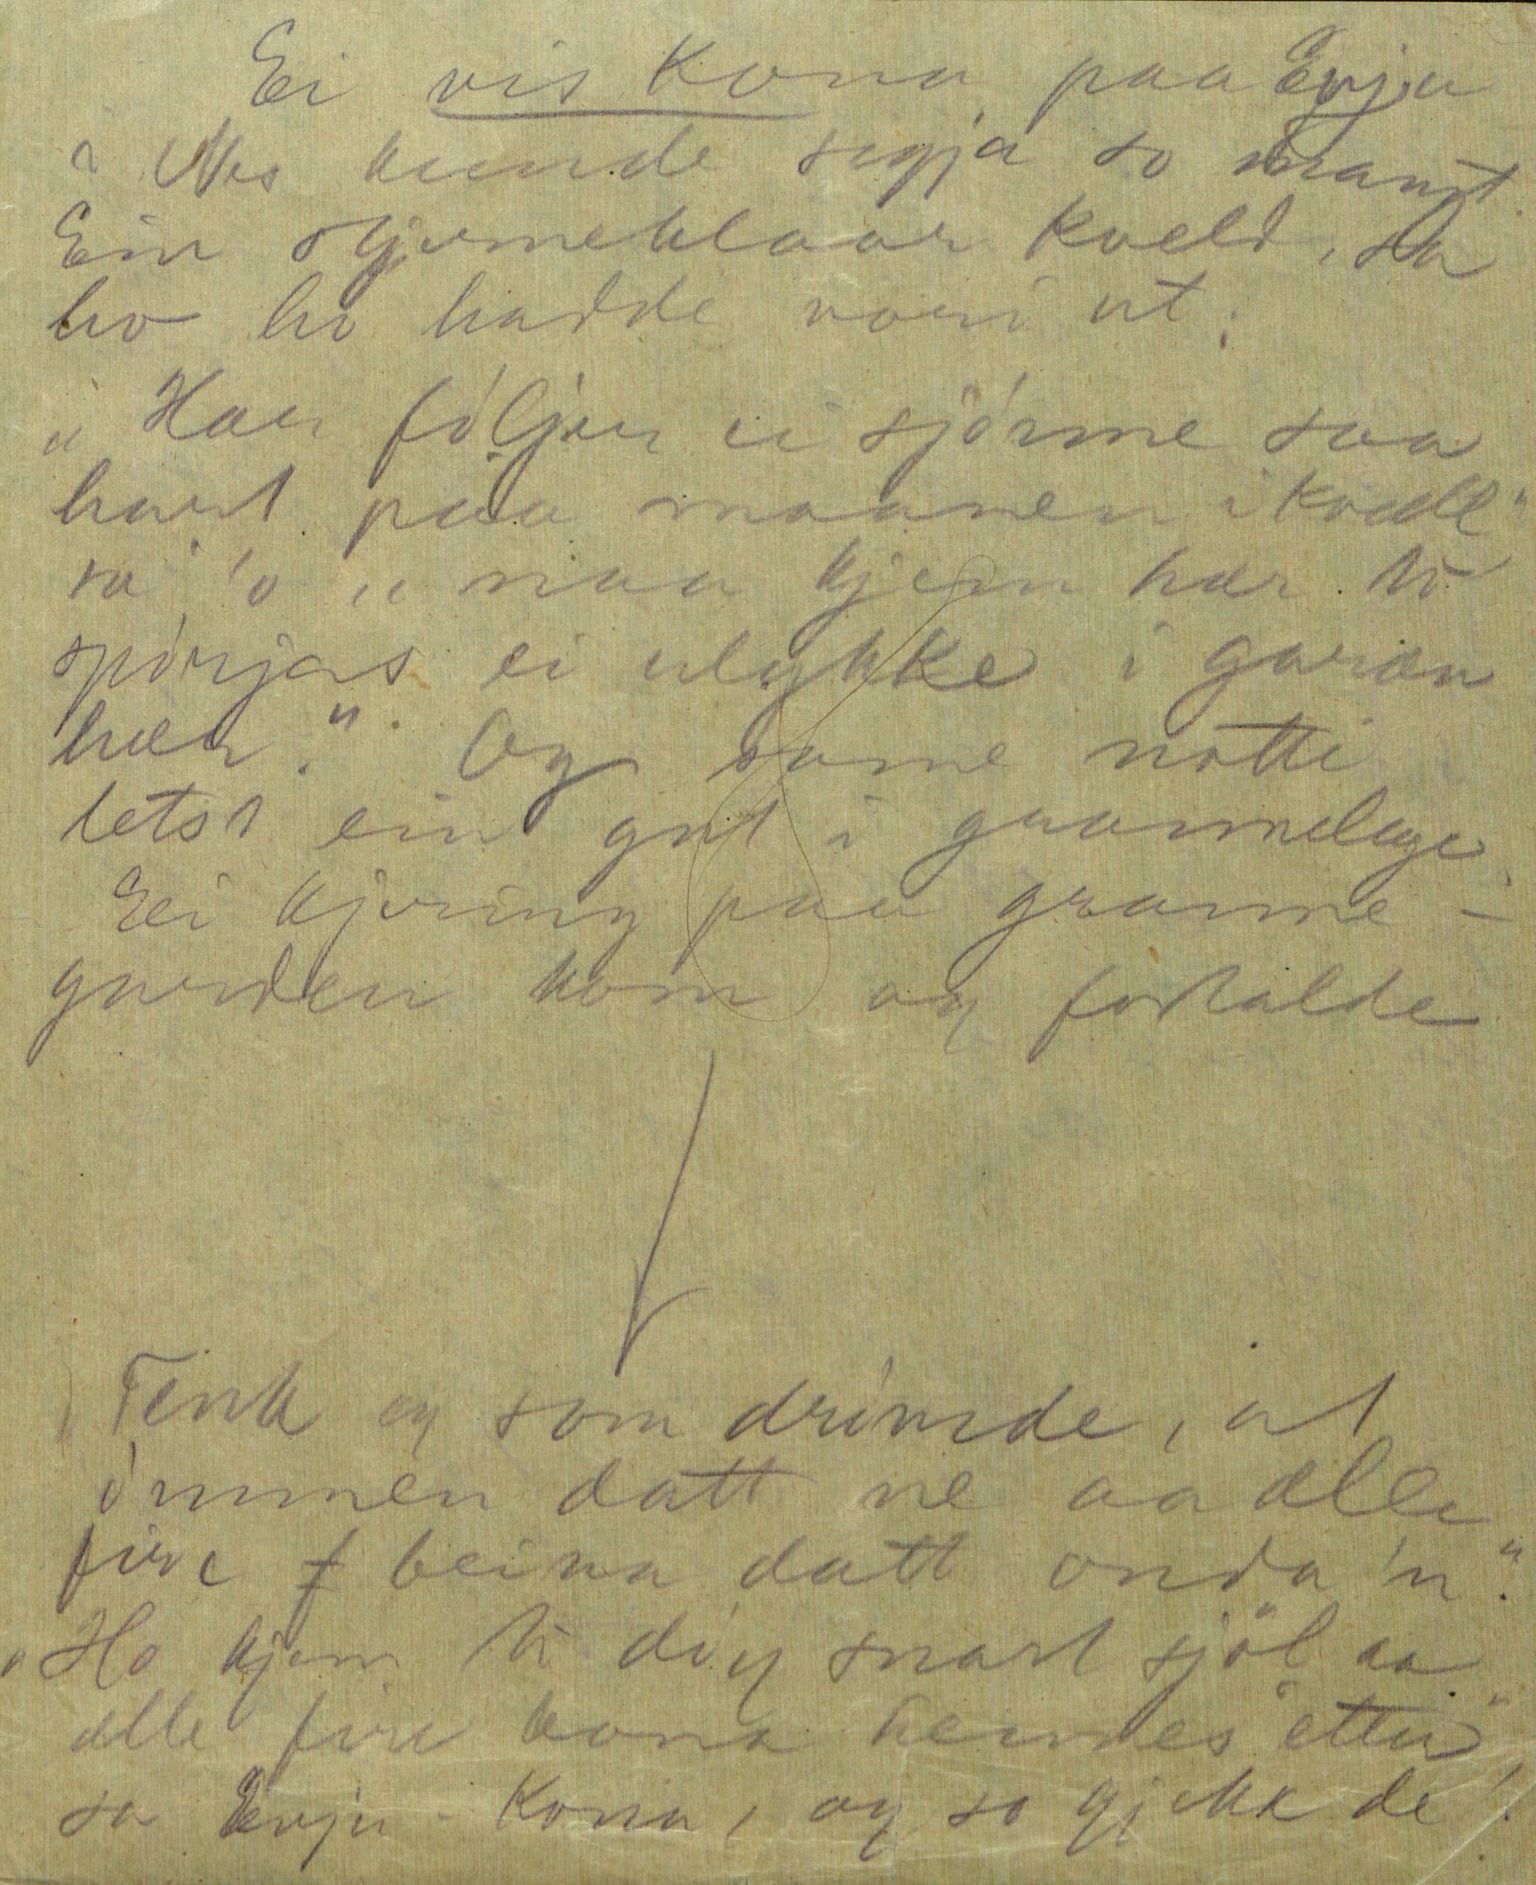 Ei vis Kona paa Evju
i Nes kunde segja so mangt.
Ein stjerneklaar kveld, sa
ho ho hadde vori ut:
"Hær føljer ei sjórne saa
hart paa maanen ikvælл"
sa 'o " naa kjem hær te
spórjas ei ulykke i garɖen
hær." Og same notti
letst ein gut i grannelage.
Ei kjering paa granne-
garden kom og fortalde
Tenk eg som drómde, at
ómmen datt ne aa alle
fire f beina datt onda 'n".
"Ho kjem te dóy snart sjöl aa
alle fire bona hennes etter"
sa Evju-Kona, og so gjekk de!.